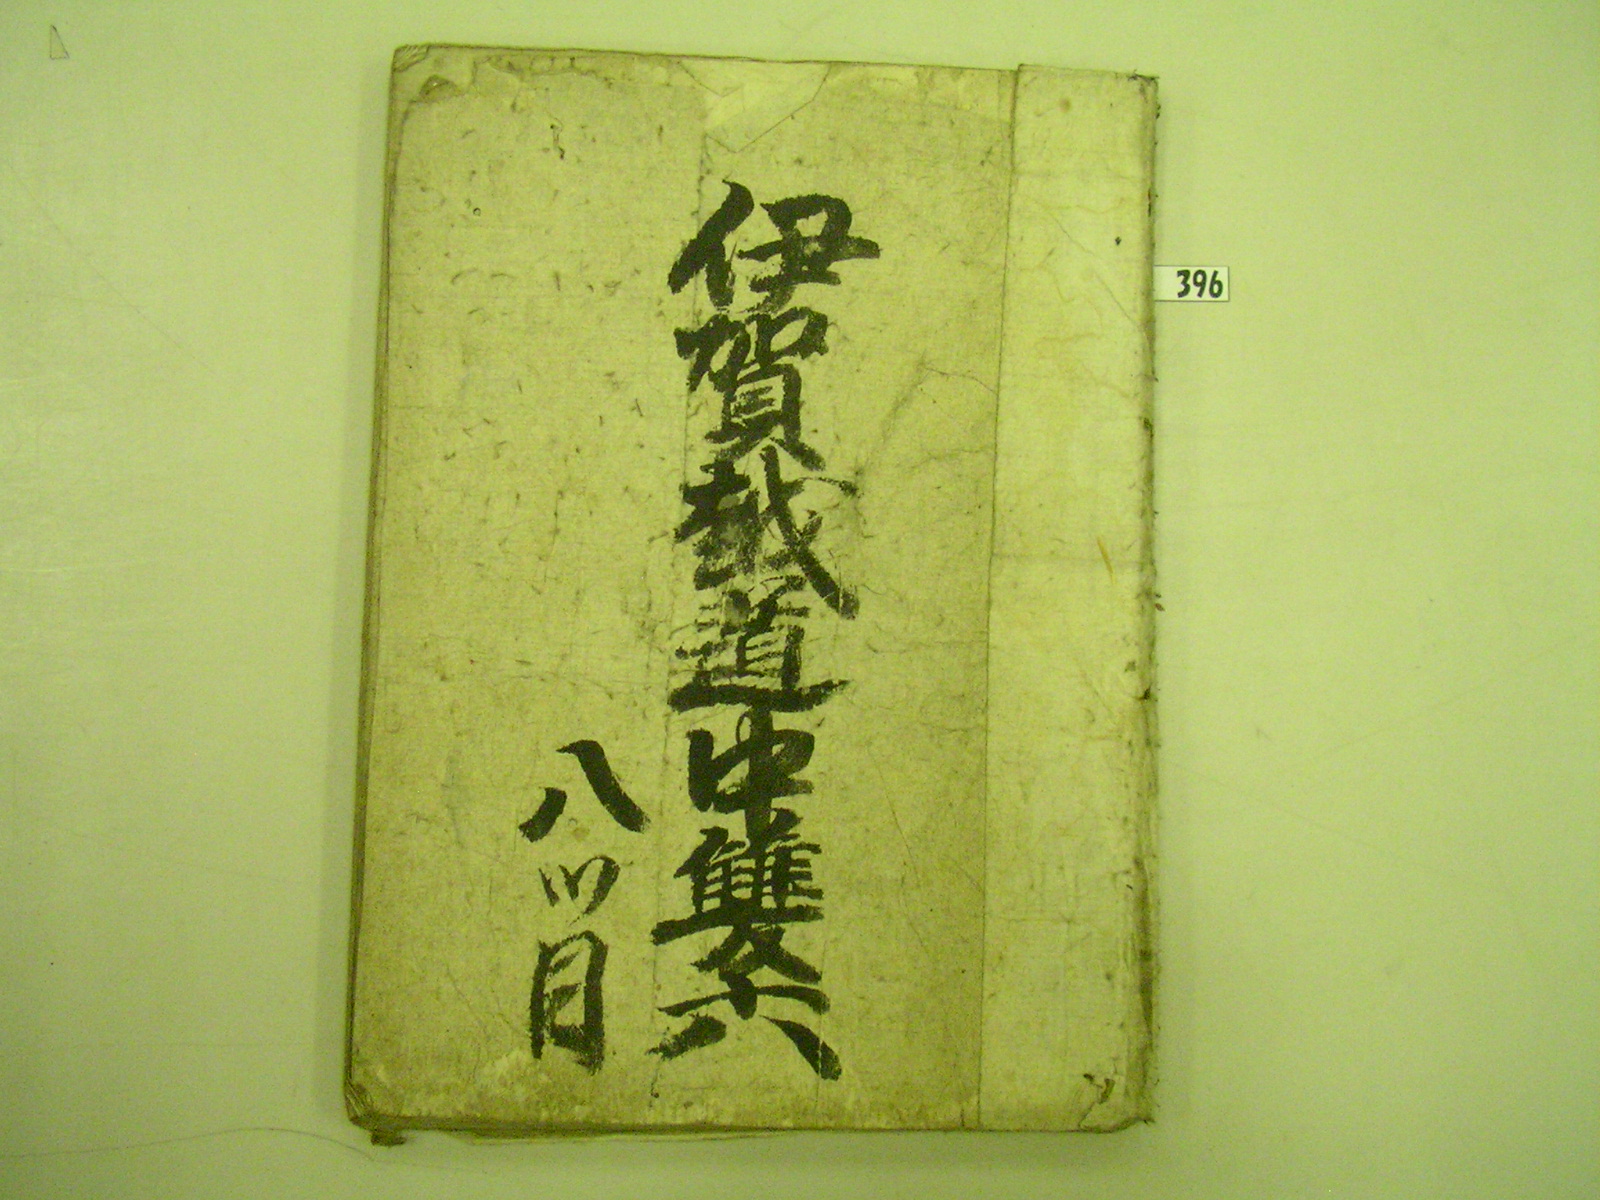 伊賀越道中雙六
八ツ目
396